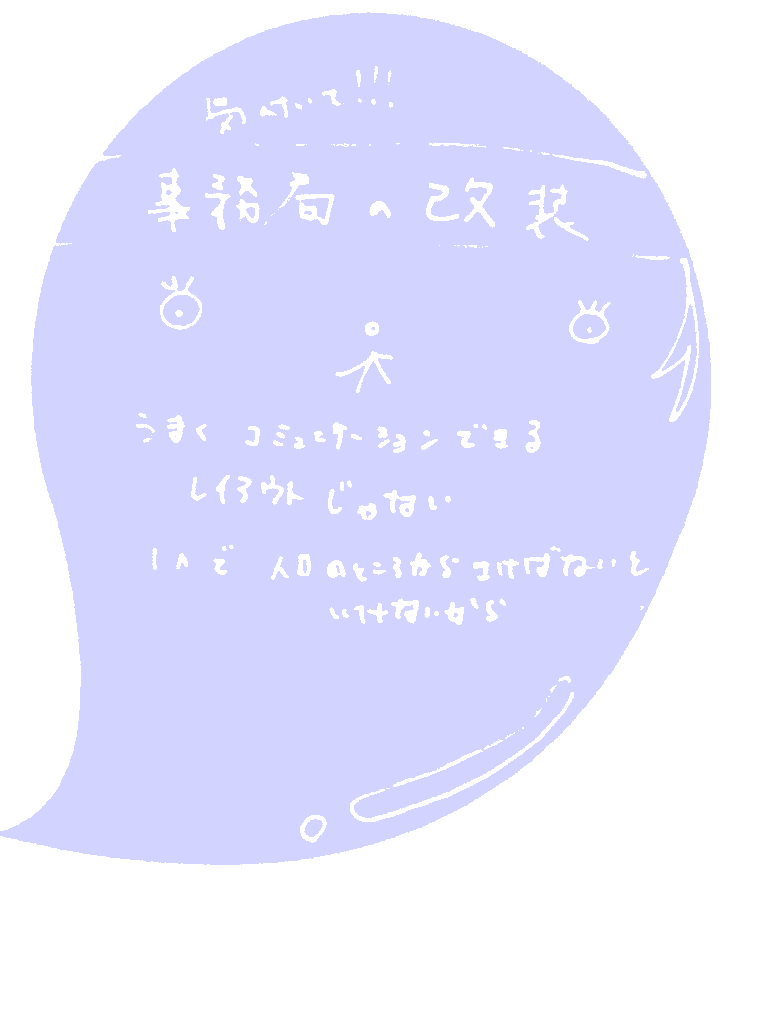 気付いて!!!
事務局の改装
うまく コミュニケーションできる
レイアウトじゃない
1人で 入口のところから さけばないと
いけないから